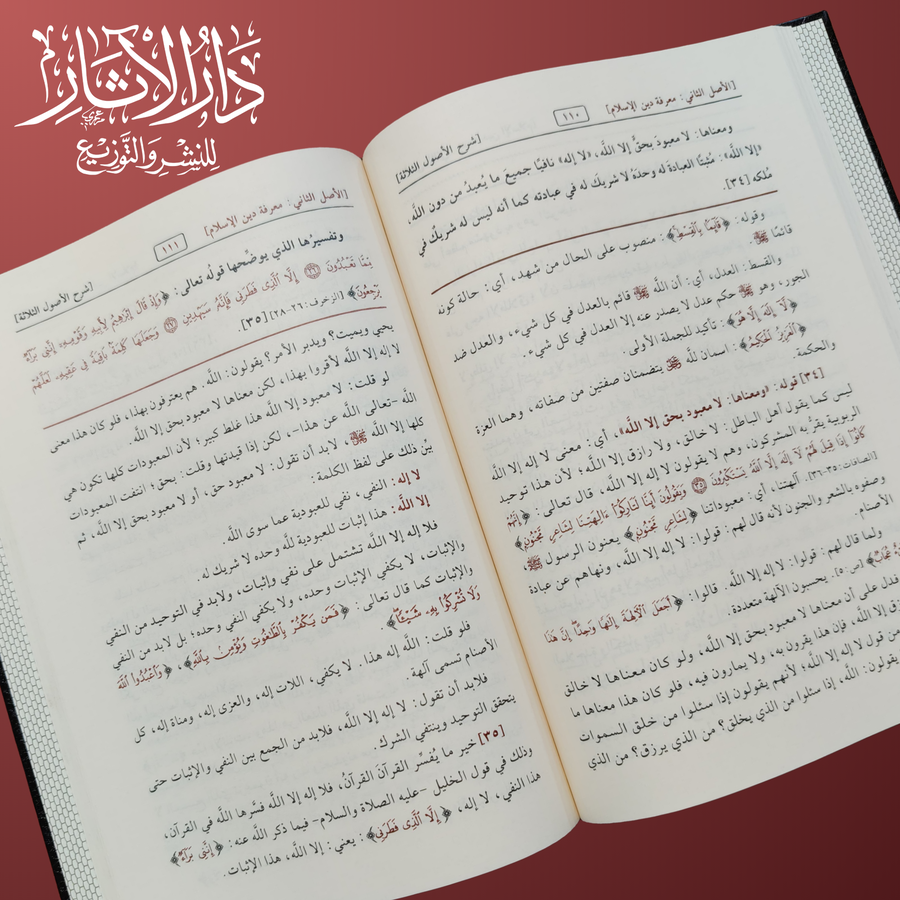 دار الآثار
للنشر والتوزيع
[الأصل الثاني: معرفة دين الإسلام]
١١٠
[شرح الأصول الثلاثة]
ومعناها: لا معبودَ بحقٍّ إلا الله، «لا إله» نافيًا جميعَ ما يُعبدُ من دون الله،
«إلا الله»: مُثبتًا العبادة له وحدَه لا شريكَ له في عبادته كما أنه ليس له شريكٌ في
مُلكه [٣٤].
وقوله: ﴿قَآئِمًۢا بِٱلْقِسْطِ﴾: منصوب على الحال من شهد، أي: حالة كونه
قائمًا ﷻ.
والقسط: العدل، أي: أن الله ﷻ قائم بالعدل في كل شيء، والعدل ضد
الجور، وهو ﷻ حكم عدل لا يصدر عنه إلا العدل في كل شيء.
﴿لَآ إِلَٰهَ إِلَّا هُوَ﴾: تأكيد للجملة الأولى.
﴿ٱلْعَزِيزُ ٱلْحَكِيمُ﴾: اسمان لله ﷻ يتضمنان صفتين من صفاته، وهما العزة
والحكمة.
[٣٤] قوله: «ومعناها: لا معبود بحق إلا الله»، أي: معنى لا إله إلا الله
ليس كما يقول أهل الباطل: لا خالق، ولا رازق إلا الله؛ لأن هذا توحيد
الربوبية يقرُّ به المشركون، وهم لا يقولون لا إله إلا الله، قال تعالى: ﴿إِنَّهُمْ
كَانُوٓا۟ إِذَا قِيلَ لَهُمْ لَآ إِلَٰهَ إِلَّا ٱللَّهُ يَسْتَكْبِرُونَ ۝٣٥ وَيَقُولُونَ أَئِنَّا لَتَارِكُوٓا۟ ءَالِهَتِنَا لِشَاعِرٍ مَّجْنُونٍ﴾
[الصافات: ٣٥-٣٦]. آلهتنا، أي: معبوداتنا ﴿لِشَاعِرٍ مَّجْنُونٍ﴾ يعنون الرسول ﷺ
وصفوه بالشعر والجنون لأنه قال لهم: قولوا: لا إله إلا الله، ونهاهم عن عبادة
الأصنام.
ولما قال لهم: قولوا: لا إله إلا الله. قالوا: ﴿أَجَعَلَ ٱلْءَالِهَةَ إِلَٰهًا وَٰحِدًا إِنَّ هَٰذَا
عُجَابٌ﴾ [ص:٥]. يحسبون الآلهة متعددة.
فدل على أن معناها لا معبود بحق إلا الله، ولو كان معناها لا خالق
إلا الله، فإن هذا يقرون به، ولا يمارون فيه، فلو كان هذا معناها ما
من قول لا إله إلا الله، لأنهم يقولون إذا سئلوا من خلق السموات
يقولون: الله، إذا سئلوا من الذي يخلق؟ من الذي يرزق؟ من الذي
[الأصل الثاني: معرفة دين الإسلام]
١١١
[شرح الأصول الثلاثة]
وتفسيرُها الذي يوضِّحها قولُه تعالى: ﴿وَإِذْ قَالَ إِبْرَٰهِيمُ لِأَبِيهِ وَقَوْمِهِۦٓ إِنَّنِى بَرَآءٌ
مِّمَّا تَعْبُدُونَ ۝٢٦ إِلَّا ٱلَّذِى فَطَرَنِى فَإِنَّهُۥ سَيَهْدِينِ ۝٢٧ وَجَعَلَهَا كَلِمَةًۢ بَاقِيَةً فِى عَقِبِهِۦ لَعَلَّهُمْ
يَرْجِعُونَ﴾ [الزخرف: ٢٦-٢٨] [٣٥].
يحيي ويميت؟ ويدبر الأمر؟ يقولون: الله. هم يعترفون بهذا، فلو كان هذا معنى
لا إله إلا الله لأقروا بهذا، لكن معناها لا معبود بحق إلا الله.
لو قلت: لا معبود إلا الله هذا غلط كبير؛ لأن المعبودات كلها تكون هي
الله -تعالى الله عن هذا-، لكن إذا قيدتها وقلت: بحق؛ انتفت المعبودات
كلها إلا الله ﷻ، لابد أن تقول: لا معبود حق، أو لا معبود بحق إلا الله، ثم
بيِّن ذلك على لفظ الكلمة:
لا إله: النفي، نفي للعبودية عما سوى الله.
إلا الله: هذا إثبات للعبودية لله وحده لا شريك له.
فلا إله إلا الله تشتمل على نفي وإثبات، ولابد في التوحيد من النفي
والإثبات، لا يكفي الإثبات وحده، ولا يكفي النفي وحده؛ بل لابد من النفي
والإثبات كما قال تعالى: ﴿فَمَن يَكْفُرْ بِٱلطَّٰغُوتِ وَيُؤْمِنۢ بِٱللَّهِ﴾، ﴿وَٱعْبُدُوا۟ ٱللَّهَ
وَلَا تُشْرِكُوا۟ بِهِۦ شَيْـًٔا﴾.
فلو قلت: الله إله هذا. لا يكفي، اللات إله، والعزى إله، ومناة إله، كل
الأصنام تسمى آلهة.
فلابد أن تقول: لا إله إلا الله، فلابد من الجمع بين النفي والإثبات حتى
يتحقق التوحيد وينتفي الشرك.
[٣٥] خير ما يُفسَّر القرآن القرآنُ، فلا إله إلا الله فسَّرها الله في القرآن،
وذلك في قول الخليل -عليه الصلاة والسلام- فيما ذكر الله عنه: ﴿إِنَّنِى بَرَآءٌ﴾
هذا النفي، لا إله، ﴿إِلَّا ٱلَّذِى فَطَرَنِى﴾: يعني: إلا الله، هذا الإثبات.